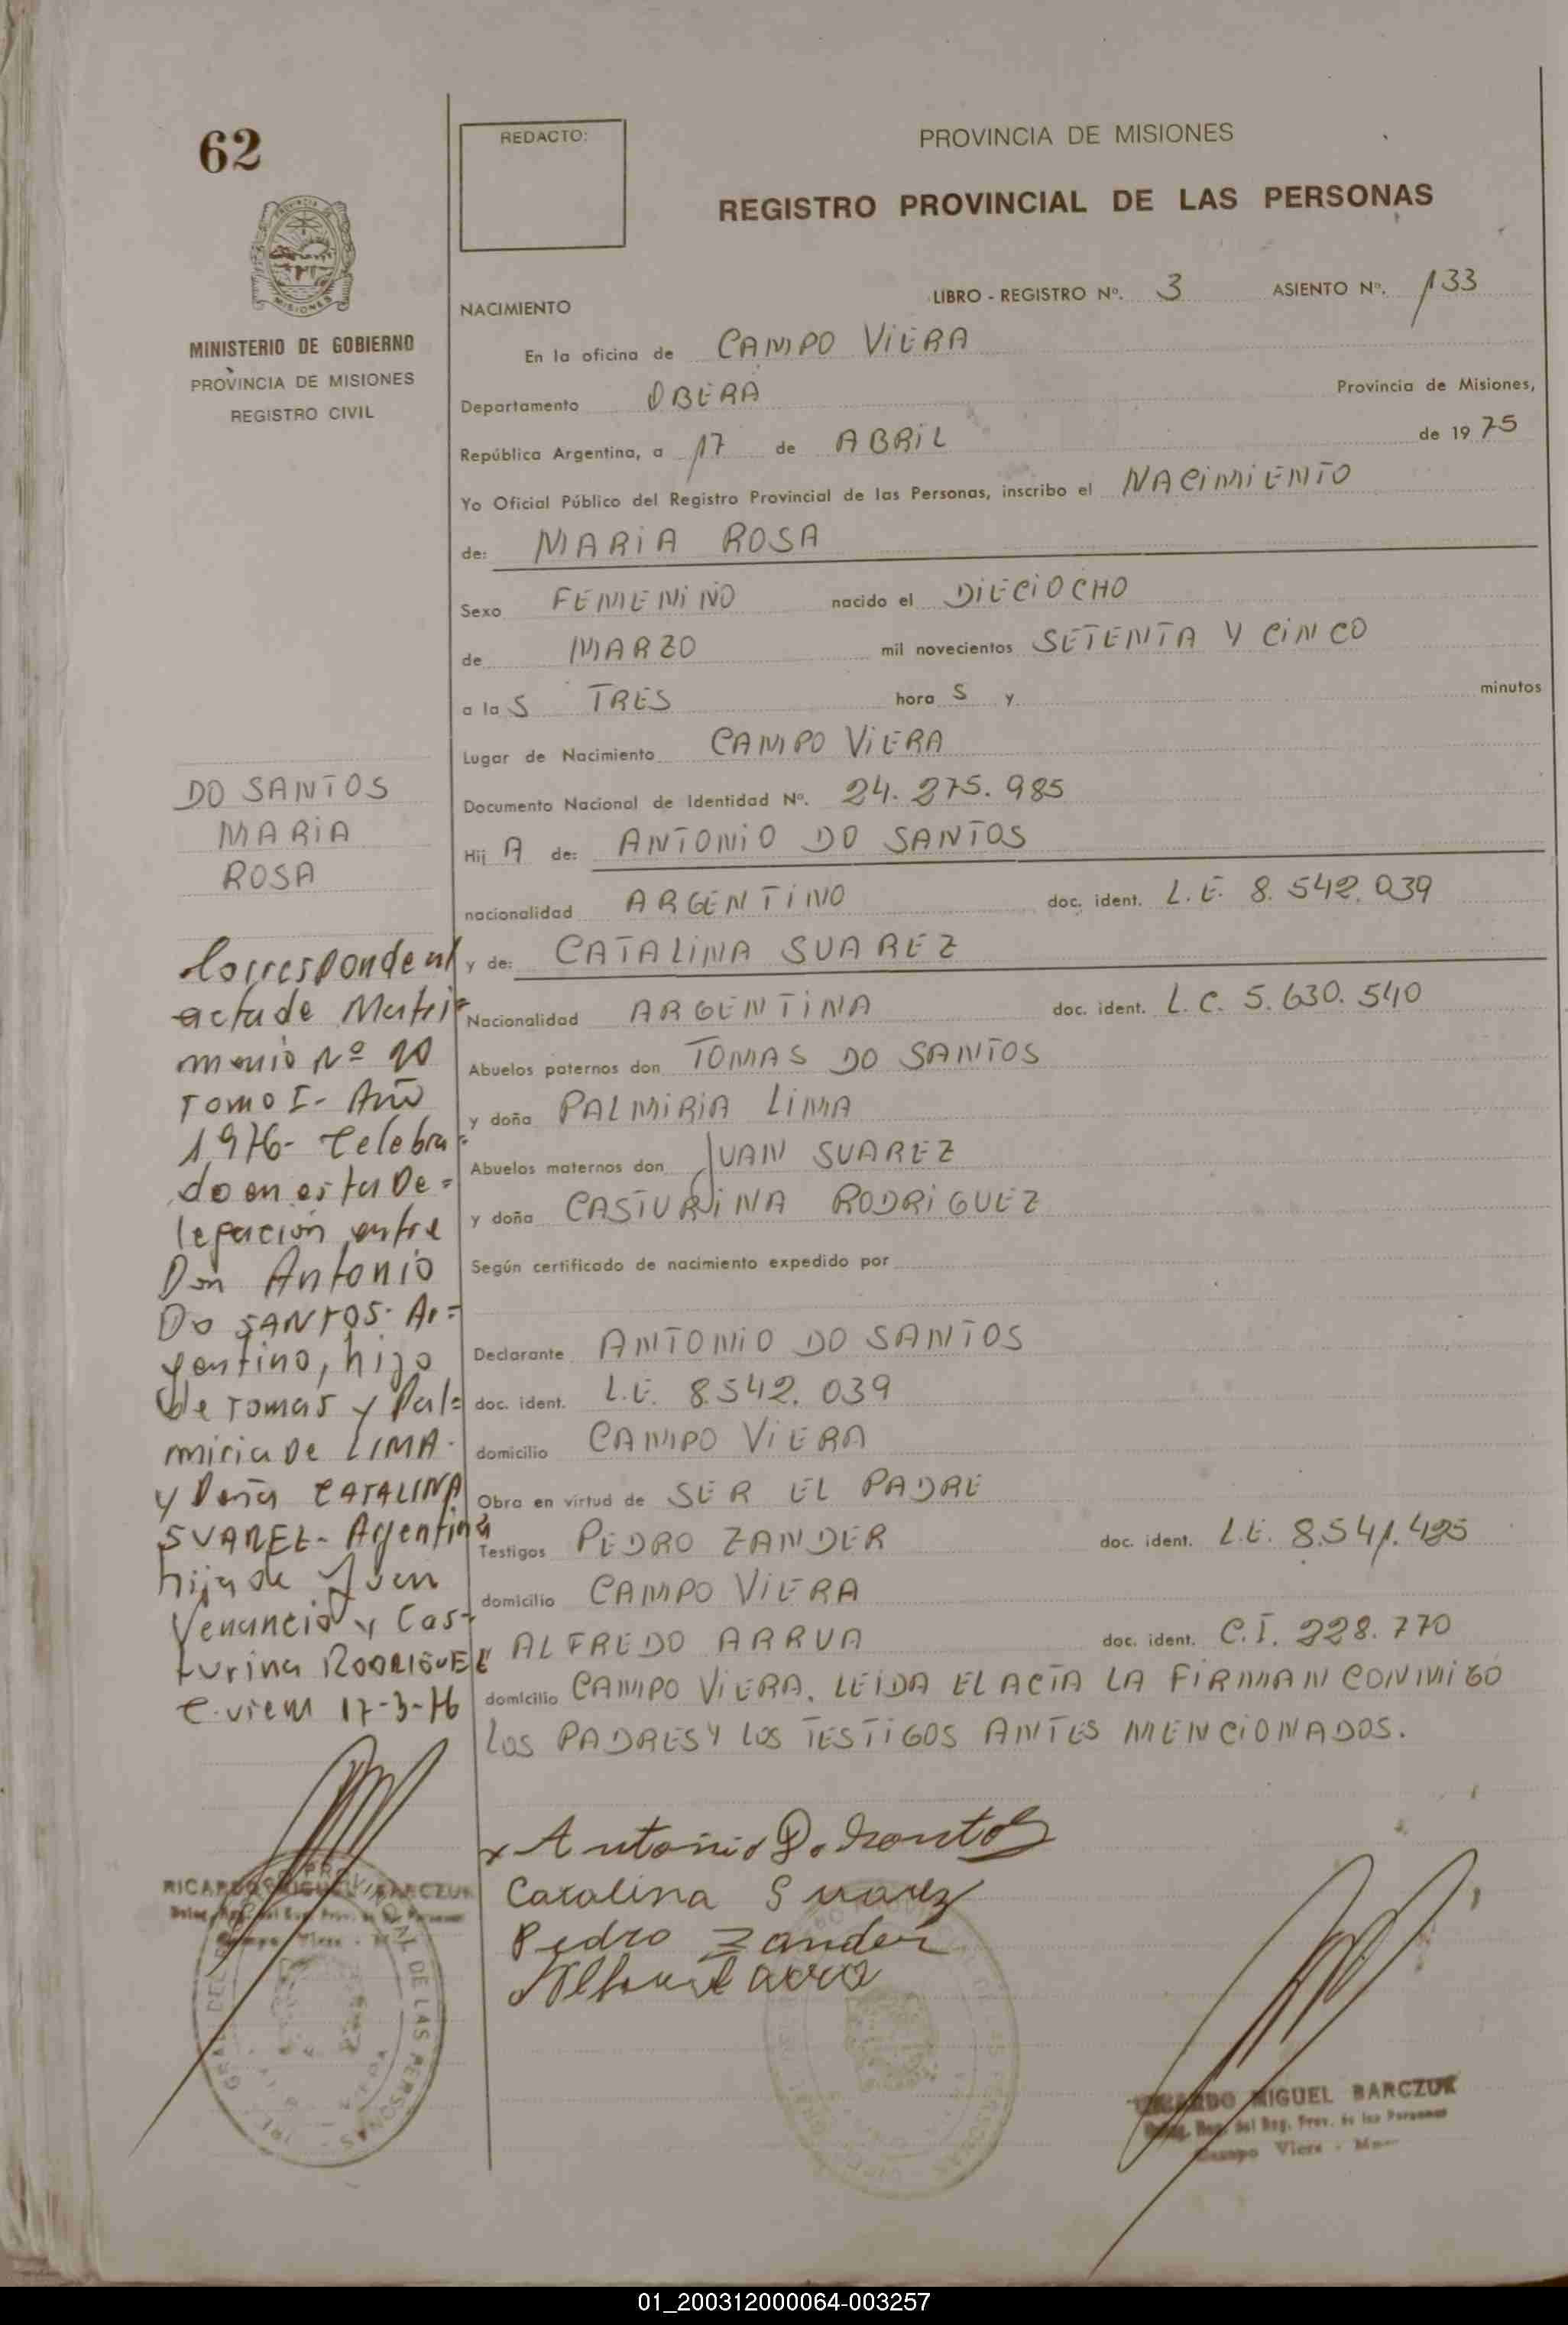 62
REDACTO:
PROVINCIA DE MISIONES
REGISTRO PROVINCIAL DE LAS PERSONAS
MINISTERIO DE GOBIERNO
PROVINCIA DE MISIONES
REGISTRO CIVIL
LIBRO - REGISTRO Nº. 3 ASIENTO Nº. 133
NACIMIENTO
En la oficina de CAMPO VIERA
Departamento OBERA Provincia de Misiones,
República Argentina, a 17 de ABRIL de 1975
Yo Oficial Público del Registro Provincial de las Personas, inscribo el NACIMIENTO
de: MARIA ROSA
Sexo FEMENINO nacido el DIECIOCHO
de MARZO mil novecientos SETENTA Y CINCO
a la S TRES hora S y minutos
Lugar de Nacimiento CAMPO VIERA
Documento Nacional de Identidad Nº. 24.275.985
Hij A de: ANTONIO DO SANTOS
nacionalidad ARGENTINO doc. ident. L.E. 8.542.039
y de: CATALINA SUAREZ
Nacionalidad ARGENTINA doc. ident. L.C. 5.630.540
Abuelos paternos don TOMAS DO SANTOS
y doña PALMIRIA LIMA
Abuelos maternos don JUAN SUAREZ
y doña CASTURINA RODRIGUEZ
Según certificado de nacimiento expedido por
Declarante ANTONIO DO SANTOS
doc. ident. L.E. 8.542.039
domicilio CAMPO VIERA
Obra en virtud de SER EL PADRE
Testigos PEDRO ZANDER doc. ident. L.E. 8.541.485
domicilio CAMPO VIERA
ALFREDO ARRUA doc. ident. C.I. 228.770
domicilio CAMPO VIERA. LEIDA EL ACTA LA FIRMAN CONMIGO
LOS PADRES Y LOS TESTIGOS ANTES MENCIONADOS.
DO SANTOS
MARIA
ROSA
Corresponde al
acta de Matri=
monio Nº 20
Tomo I- Año
1976- Celebra=
do en esta De=
legación entre
Don Antonio
Do SANTOS- Ar=
gentino, hijo
de Tomas y Pal=
miria De LIMA-
y Doña CATALINA
SUAREZ- Argentina
hija de Juan
Venancio y Cas-
turina RODRIGUEZ
C. viera 17-3-76
Antonio D. Santos
Catalina Suarez
Pedro Zander
RICARDO MIGUEL BARCZUK
Campo Viera
DE LAS PERSONAS
RICARDO MIGUEL BARCZUK
Deleg. Reg. del Reg. Prov. de las Personas
Campo Viera
01_200312000064-003257